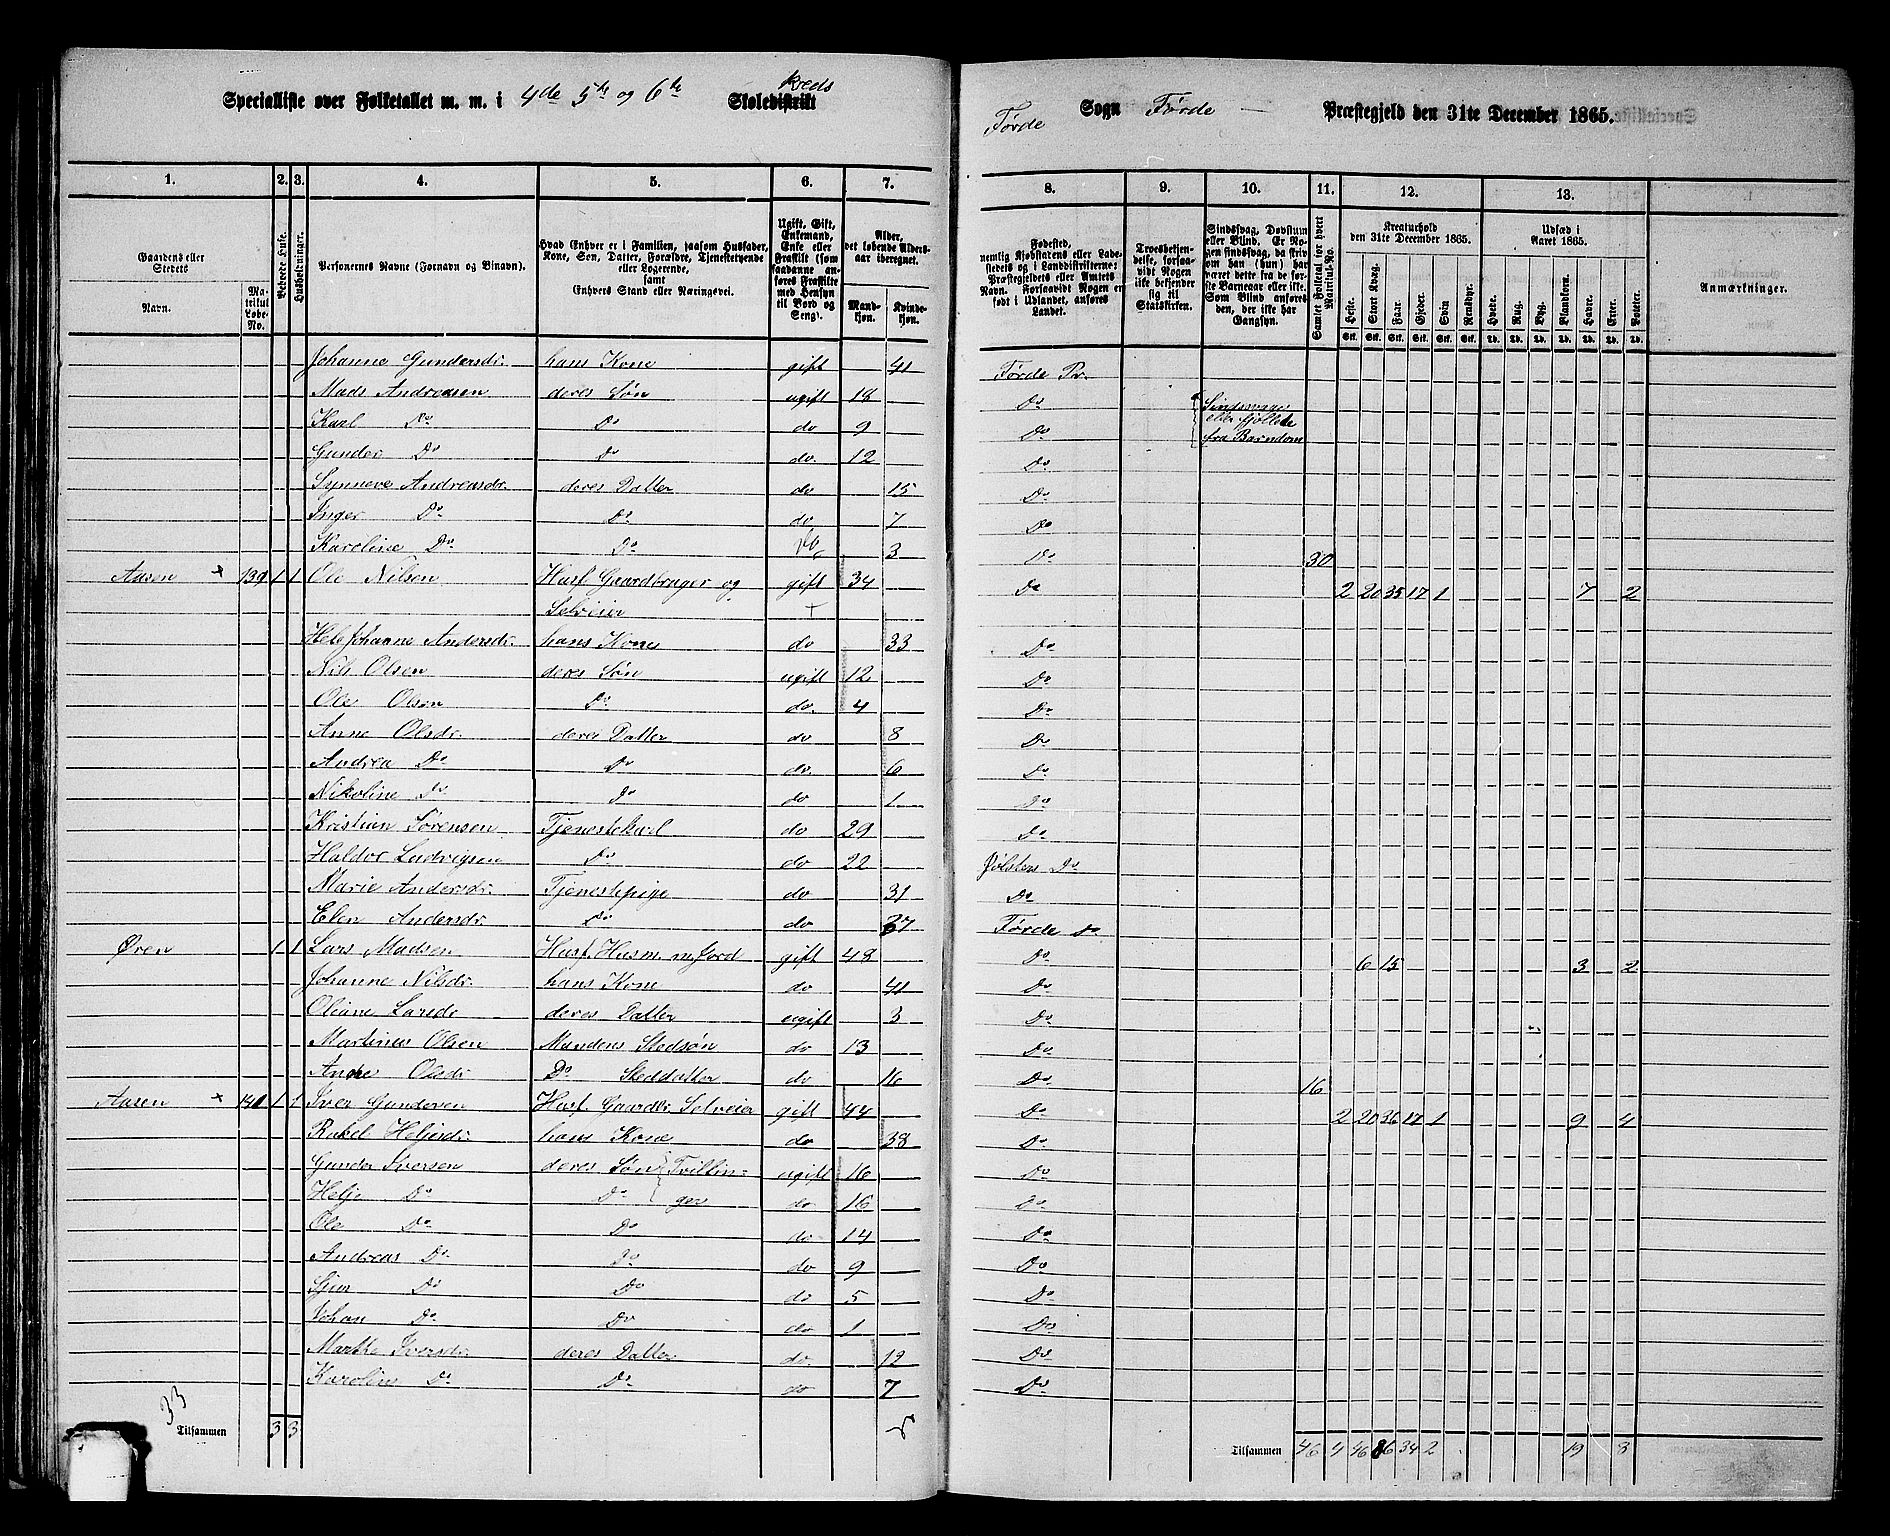 Specialliste over Folketallet m. m. i 4de 5te og 6te Kreds Skoledistrikt
Førde Sogn Førde — Præstegjeld den 31te December 1865.
1. 2. 3. 4. 5. 6. 7. 8. 9. 10. 11. 12. 13.
Gaardens eller Stedets
Navn. Matrikul Løbe-No.
Beboede Huse.
Husholdninger.
Personernes Navne (Fornavn og Binavn).
Hvad Enhver er i Familien, saasom Husfader, Kone, Søn, Datter, Forældre, Tjenestetyende eller Logerende, samt Enhvers Stand eller Næringsvei.
Ugift, Gift, Enkemand, Enke eller Fraskilt (som saadanne anføres Fraskilte med Hensyn til Bord og Seng).
Alder, det løbende Alders-aar iberegnet.
Mandkjøn. Kvindekjøn.
Fødested, nemlig Kjøbstadens eller Ladestedets og i Landdistrikterne: Præstegjeldets eller Amtets Navn. Forsaavidt Nogen er født i Udlandet, anføres Landet.
Troesbekjendelse, forsaavidt Nogen ikke bekjender sig til Statskirken.
Sindssvag, Døvstum eller Blind. Er Nogen sindssvag, da skrives om han (hun) har været dette fra de første Barneaar eller ikke. Som Blind anføres den, der ikke har Gangsyn.
Samlet Folketal for hvert Matrikul-No.
Kreaturhold den 31te December 1865.
Heste. Stort Kvæg. Faar. Gjeder. Svin Rensdyr.
Udsæd i Aaret 1865.
Hvede. Rug. Byg. Blandkorn. Havre. Erter. Poteter.
Anmærkninger.
Johanne Gundersdr. hans Kone gift 41 Førde Pr.
Mads Andreasen deres Søn ugift 18 Do Sindssvage
Karl Do Do do 9 Do eller fjollede fra Barndom
Gunder Do Do do. 12 Do
Synneve Andreasdr. deres Datter do 15 Do
Inger Do Do do 7 Do
Karoline Do Do 3 Do 30
Aasen × 139 1 1 Ole Nilsen Husf. Gaardbruger og gift 34 Do 2 20 35 17 1 7 2
Selveier +
Helejohanne Andersdr. hans Kone do 33 Do
Nils Olsen deres Søn ugift 12 Do
Ole Olsen Do do. 4 Do
Anne Olsdr. deres Datter do 8 Do
Andrea Do Do do. 6 Do
Nikoline Do Do do 1 Do
Kristian Sørensen Tjenestekarl do 29 Do
Haldor Ludvigsen Do do 22 Jølsters Do
Marie Andersdr. Tjenestepige do 31 Do
Elen Andersdr. Do do 37 Førde Do
Øren 1 1 Lars Madsen Husf. Husm. m Jord gift 48 Do 6 15 3 2
Johanne Nilsdr. hans Kone do 41 Do
Oliane Larsdr deres Datter ugift 3 Do
Martinus Olsen Mandens Stedsøn do 13 Do
Anne Olsdr Do Steddatter do 16 Do 16
Aasen × 140 1 1 Iver Gundersen Husf. Gaardbr. Selveier gift 44 Do 2 20 36 17 1 9 4
Rakel Heljesdr. hans Kone do 38 Do
Gunder Iversen deres Søn Tvillin= ugift 16 Do
Helje Do Do ger do 16 Do
Ole Do Do do 14 Do
Andreas Do Do do 9 Do
Sjur Do Do do 5 Do
Johan Do Do do 1 Do
Marthe Iversdr. deres Datter do. 12 Do
Karoline Do Do do 7 Do
33
Tilsammen 3 3
Tilsammen 46 4 46 86 34 2 19 8